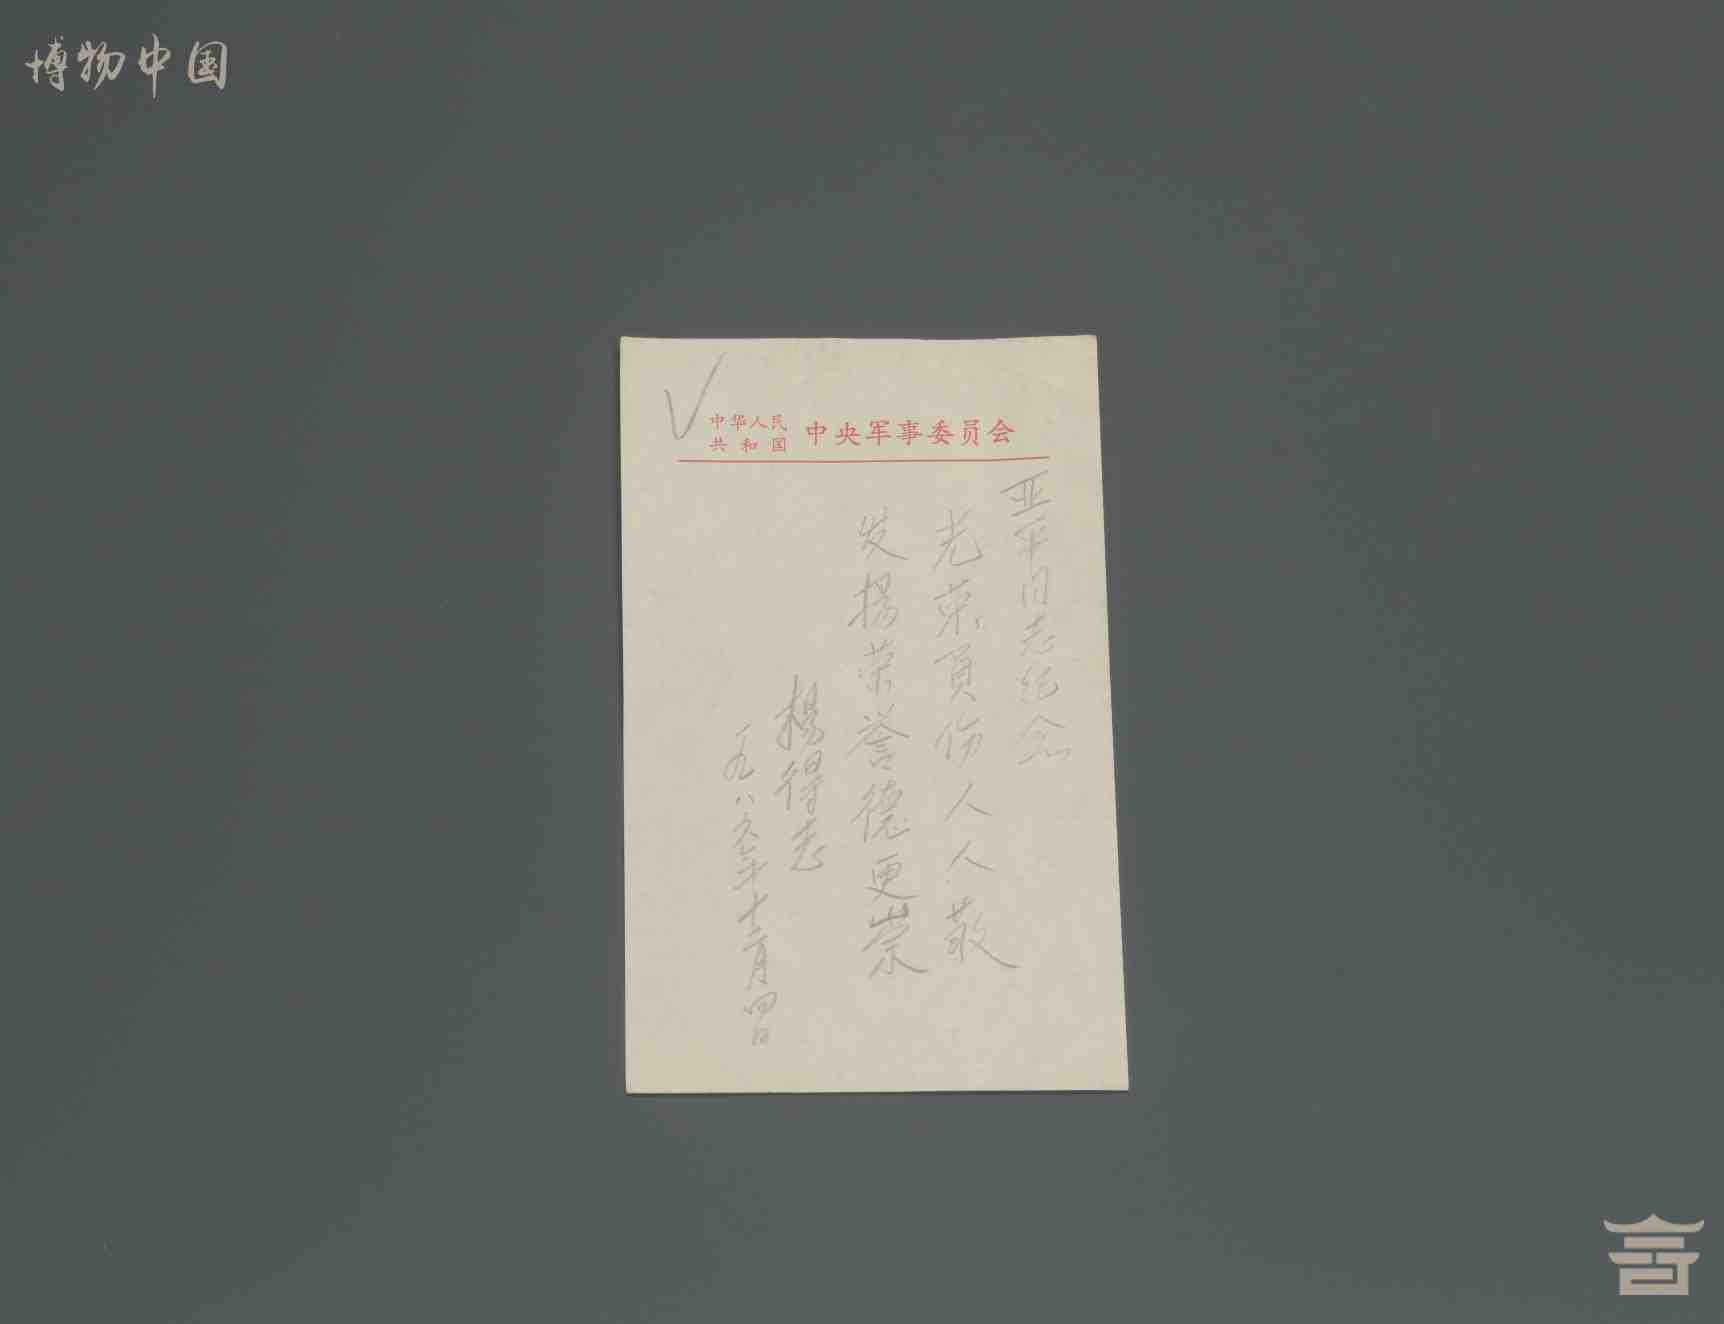 博物中国
中华人民
共和国
中央军事委员会
亚平同志纪念
光荣負伤人人敬
发揚荣誉德更崇
楊得志
一九八六年十二月四日